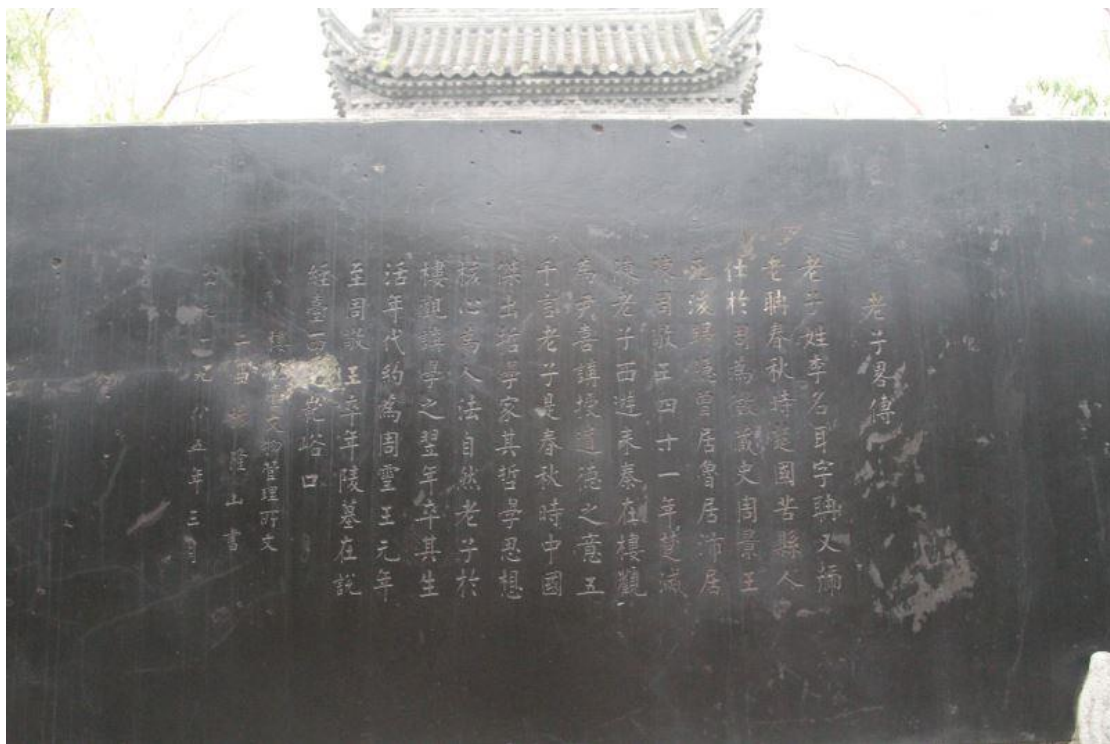 老子畧傳
老子姓李名耳字聃又稱
老聃春秋時楚國苦縣人
仕於周為守藏史周景王
死後歸隱曾居魯居沛居
陳周敬王四十一年楚滅
陳老子西遊来秦在樓觀
為尹喜講授道德之意五
千言老子是春秋時中國
傑出哲學家其哲學思想
核心為人法自然老子於
樓觀講學之翌年卒其生
活年代約為周靈王元年
至周敬王卒年陵墓在説
經臺西峪口
樓觀臺文物管理所文
二曲 隆山書
公元一九八五年三月